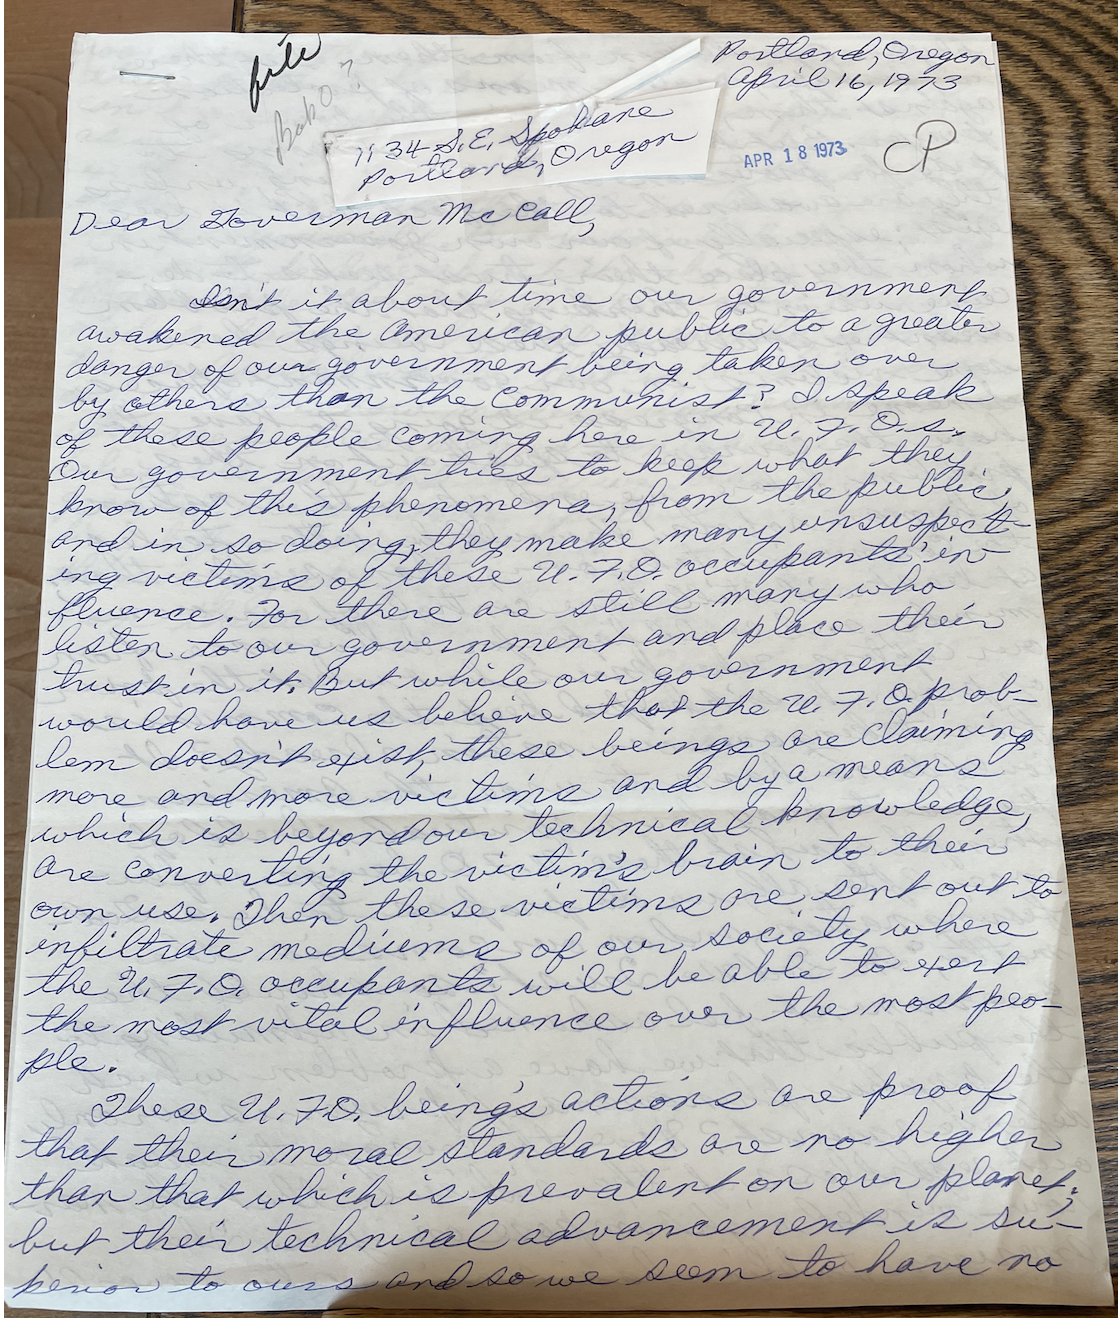 Portland, Oregon
April 16, 1973
file
Bob O?
1134 S.E. Spokane
Portland, Oregon
APR 18 1973
CP
Dear Goverman McCall,
Isn't it about time our government
awakened the American public to a greater
danger of our government being taken over
by others than the Communist? I speak
of these people coming here in U.F.O.s.
Our government tries to keep what they
know of this phenomena, from the public,
and in so doing, they make many unsuspect-
ing victims of these U.F.O. occupants' in-
fluence. For there are still many who
listen to our government and place their
trust in it. But while our government
would have us believe that the U.F.O. prob-
lem doesn't exist, these beings are claiming
more and more victims and by a means
which is beyond our technical knowledge,
are converting the victim's brain to their
own use. Then these victims are sent out to
infiltrate mediums of our society where
the U.F.O. occupants will be able to exert
the most vital influence over the most peo-
ple.
These U.F.O. being's actions are proof
that their moral standards are no higher
than that which is prevalent on our planet;
but their technical advancement is su-
perior to ours and so we seem to have no